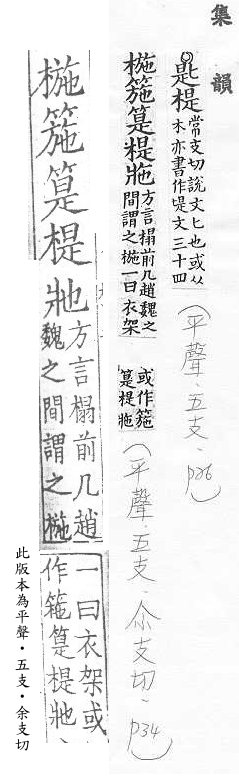 集韻
匙㮛常支切說文匕也或从
木亦書作堤文三十四
（平聲．五支．p26）
椸箷㮛方言榻前几趙魏之
間謂之椸一曰衣架
或作箷
㮛
（平聲．五支．余支切．p34）
椸箷㮛
方言榻前几趙
魏之間謂之椸
一曰衣架或
作箷㮛
此版本為平聲．五支．余支切